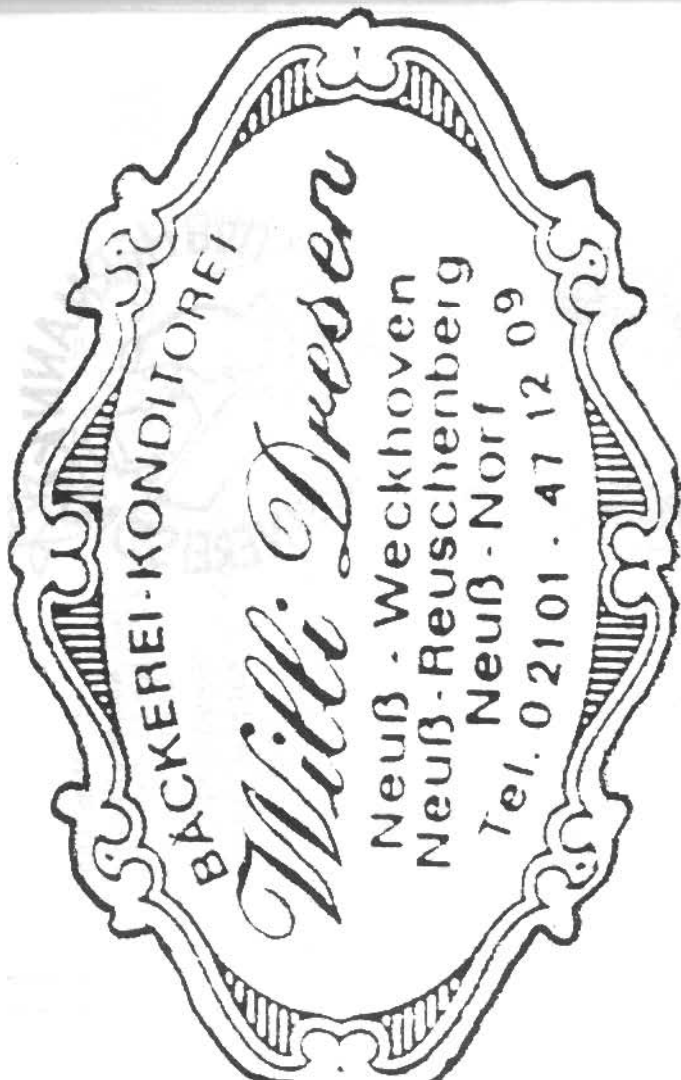 BÄCKEREI-KONDITOREI
Willi Dresen
Neuß - Weckhoven
Neuß - Reuschenberg
Neuß - Norf
Tel. 02101 - 47 12 09